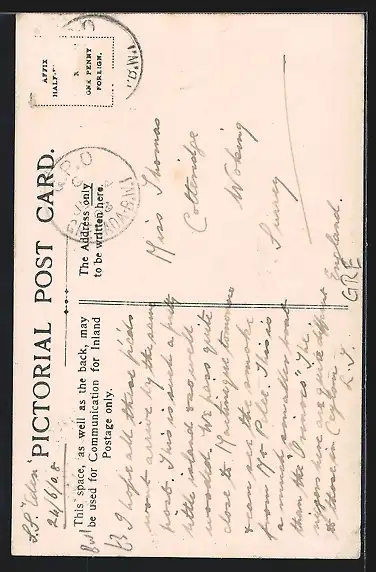 PICTORIAL POST CARD.
AFFIX
HALF
ONE PENNY
FOREIGN.
This space, as well as the back, may
be used for Communication for Inland
Postage only.
The Address only
to be written here.
G.P.O
S.S. "Eden"
24/6/08
I hope all these p.c'ds
wont arrive by the same
post. This is such a pretty
little island & so well
wooded. We pass quite
close to Martinique tomorrow
& can see the smoke
from Mt Pelee. This is
a much smaller boat
than the "Orinoco". The
niggers here are quite different
to those in Ceylon.
L.T.
Miss Thomas
Cotteridge
Woking
Surrey
England.
GRE